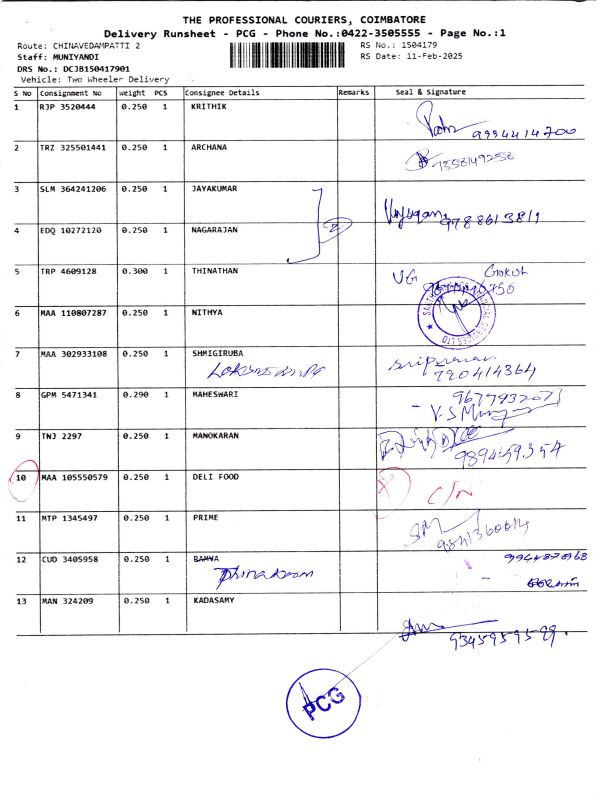 THE PROFESSIONAL COURIERS, COIMBATORE
Delivery Runsheet - PCG - Phone No.:0422-3505555 - Page No.:1
Route: CHINAVEDAMPATTI 2 RS No.: 1504179
Staff: MUNIYANDI RS Date: 11-Feb-2025
DRS No.: DCJB150417901
Vehicle: Two Wheeler Delivery
S No Consignment No Weight PCS Consignee Details Remarks Seal & Signature
1 RJP 3520444 0.250 1 KRITHIK
9994414700
2 TRZ 325501441 0.250 1 ARCHANA
7358149258
3 SLM 364241206 0.250 1 JAYAKUMAR
9788613811
4 EDQ 10272120 0.250 1 NAGARAJAN 2
5 TRP 4609128 0.300 1 THINATHAN
VG Gokul
6 MAA 110807287 0.250 1 NITHYA
7 MAA 302933108 0.250 1 SHMIGIRUBA
790414364
8 GPM 5471341 0.290 1 MAHESWARI
9677932073
9 TNJ 2297 0.250 1 MANOKARAN
9894159354
10 MAA 105550579 0.250 1 DELI FOOD
C/N
11 MTP 1345497 0.250 1 PRIME
12 CUD 3405958 0.250 1 RAMYA
13 MAN 324209 0.250 1 KADASAMY
9345959599
PCG